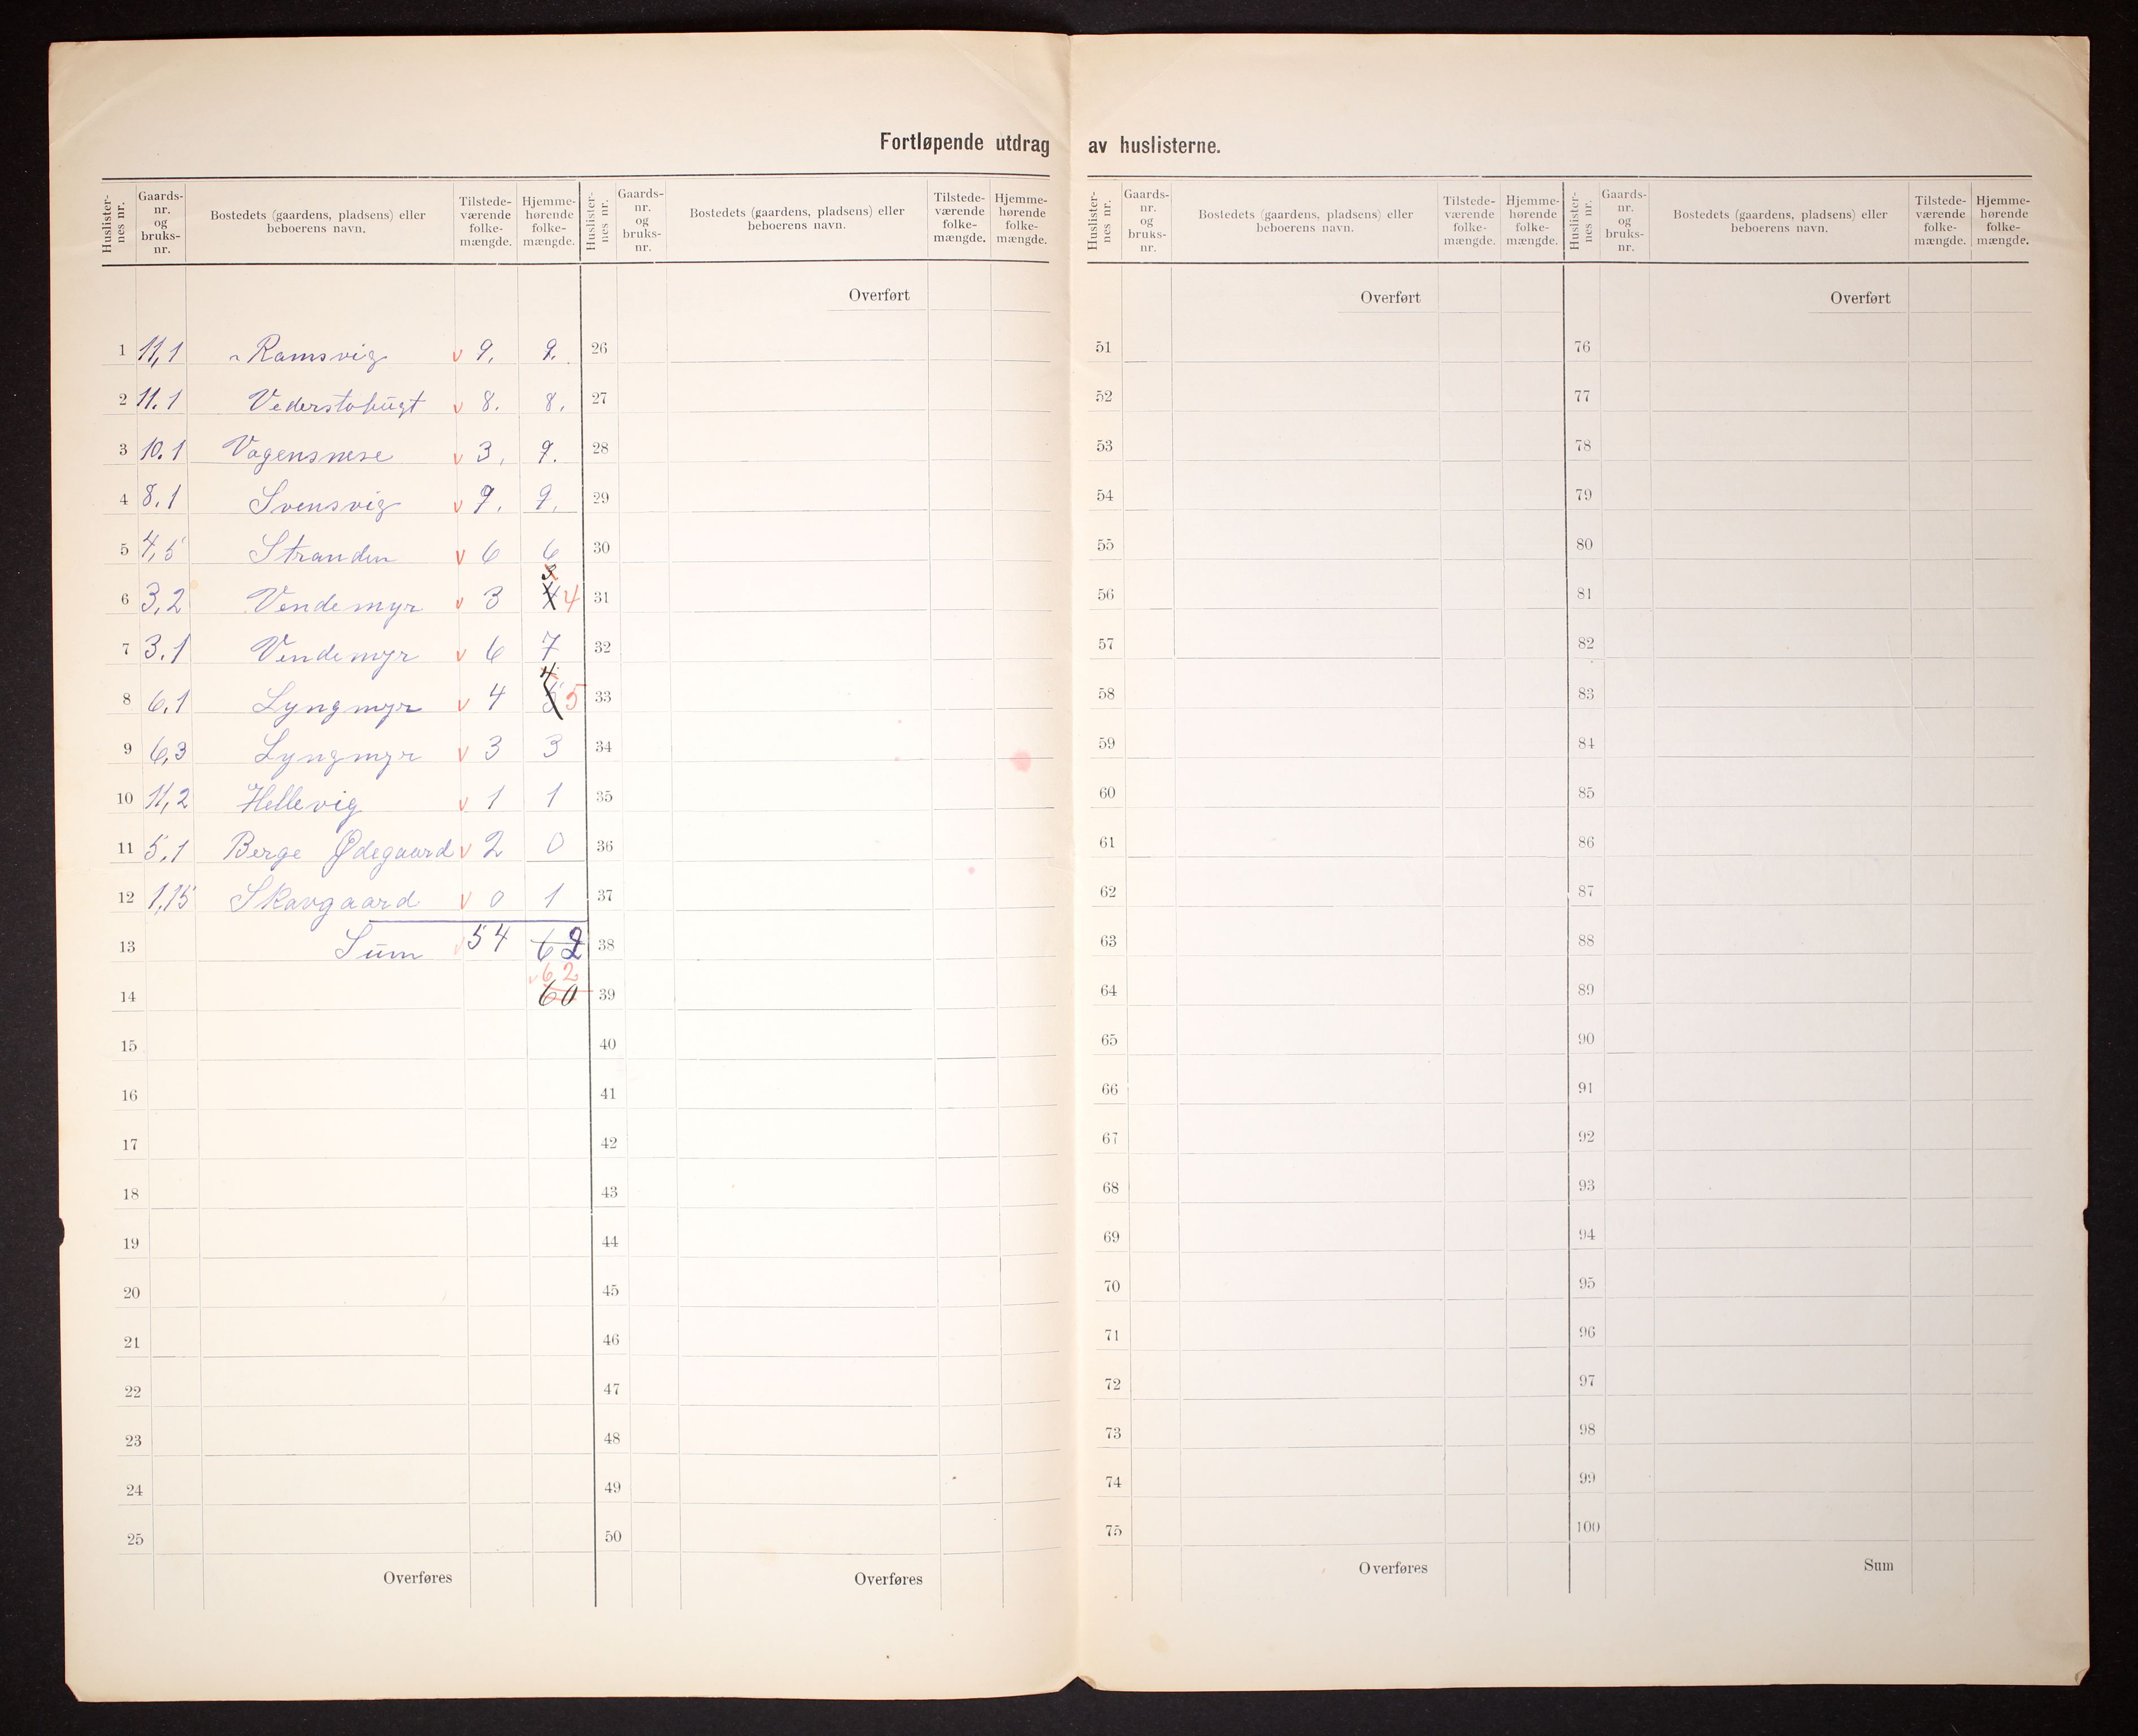 Fortløpende utdrag av huslisterne.
Huslister-nes nr. Gaards-nr. og bruks-nr. Bostedets (gaardens, pladsens) eller beboerens navn. Tilstede-værende folke-mængde. Hjemme-hørende folke-mængde. Huslister-nes nr. Gaards-nr. og bruks-nr. Bostedets (gaardens, pladsens) eller beboerens navn. Tilstede-værende folke-mængde. Hjemme-hørende folke-mængde. Huslister-nes nr. Gaards-nr. og bruks-nr. Bostedets (gaardens, pladsens) eller beboerens navn. Tilstede-værende folke-mængde. Hjemme-hørende folke-mængde. Huslister-nes nr. Gaards-nr. og bruks-nr. Bostedets (gaardens, pladsens) eller beboerens navn. Tilstede-værende folke-mængde. Hjemme-hørende folke-mængde.
Overført Overført Overført
1 11,1 Ramsvig v 9. 9. 26 51 76
2 11.1 v 8. 8. 27 52 77
3 10.1 Vagensnese v 3, 9. 28 53 78
4 8.1 Svensvig v 9. 9. 29 54 79
5 4,5 Stranden v 6 6 30 55 80
6 3,2 Vendemyr v 3 4 31 56 81
7 3.1 Vendemyr v 6 7 32 57 82
8 6.1 Lyngmyr v 4 4 5 33 58 83
9 6,3 Lyngmyr v 3 3 34 59 84
10 11,2 Hellevig v 1 1 35 60 85
11 5,1 Berge Ødegaard v 2 0 36 61 86
12 1,15 Skavgaard v 0 1 37 62 87
13 Sum v 54 62 38 63 88
v 62
14 60 39 64 89
15 40 65 90
16 41 66 91
17 42 67 92
18 43 68 93
19 44 69 94
20 45 70 95
21 46 71 96
22 47 72 97
23 48 73 98
24 49 74 99
25 50 75 100
Overføres Overføres Overføres Sum